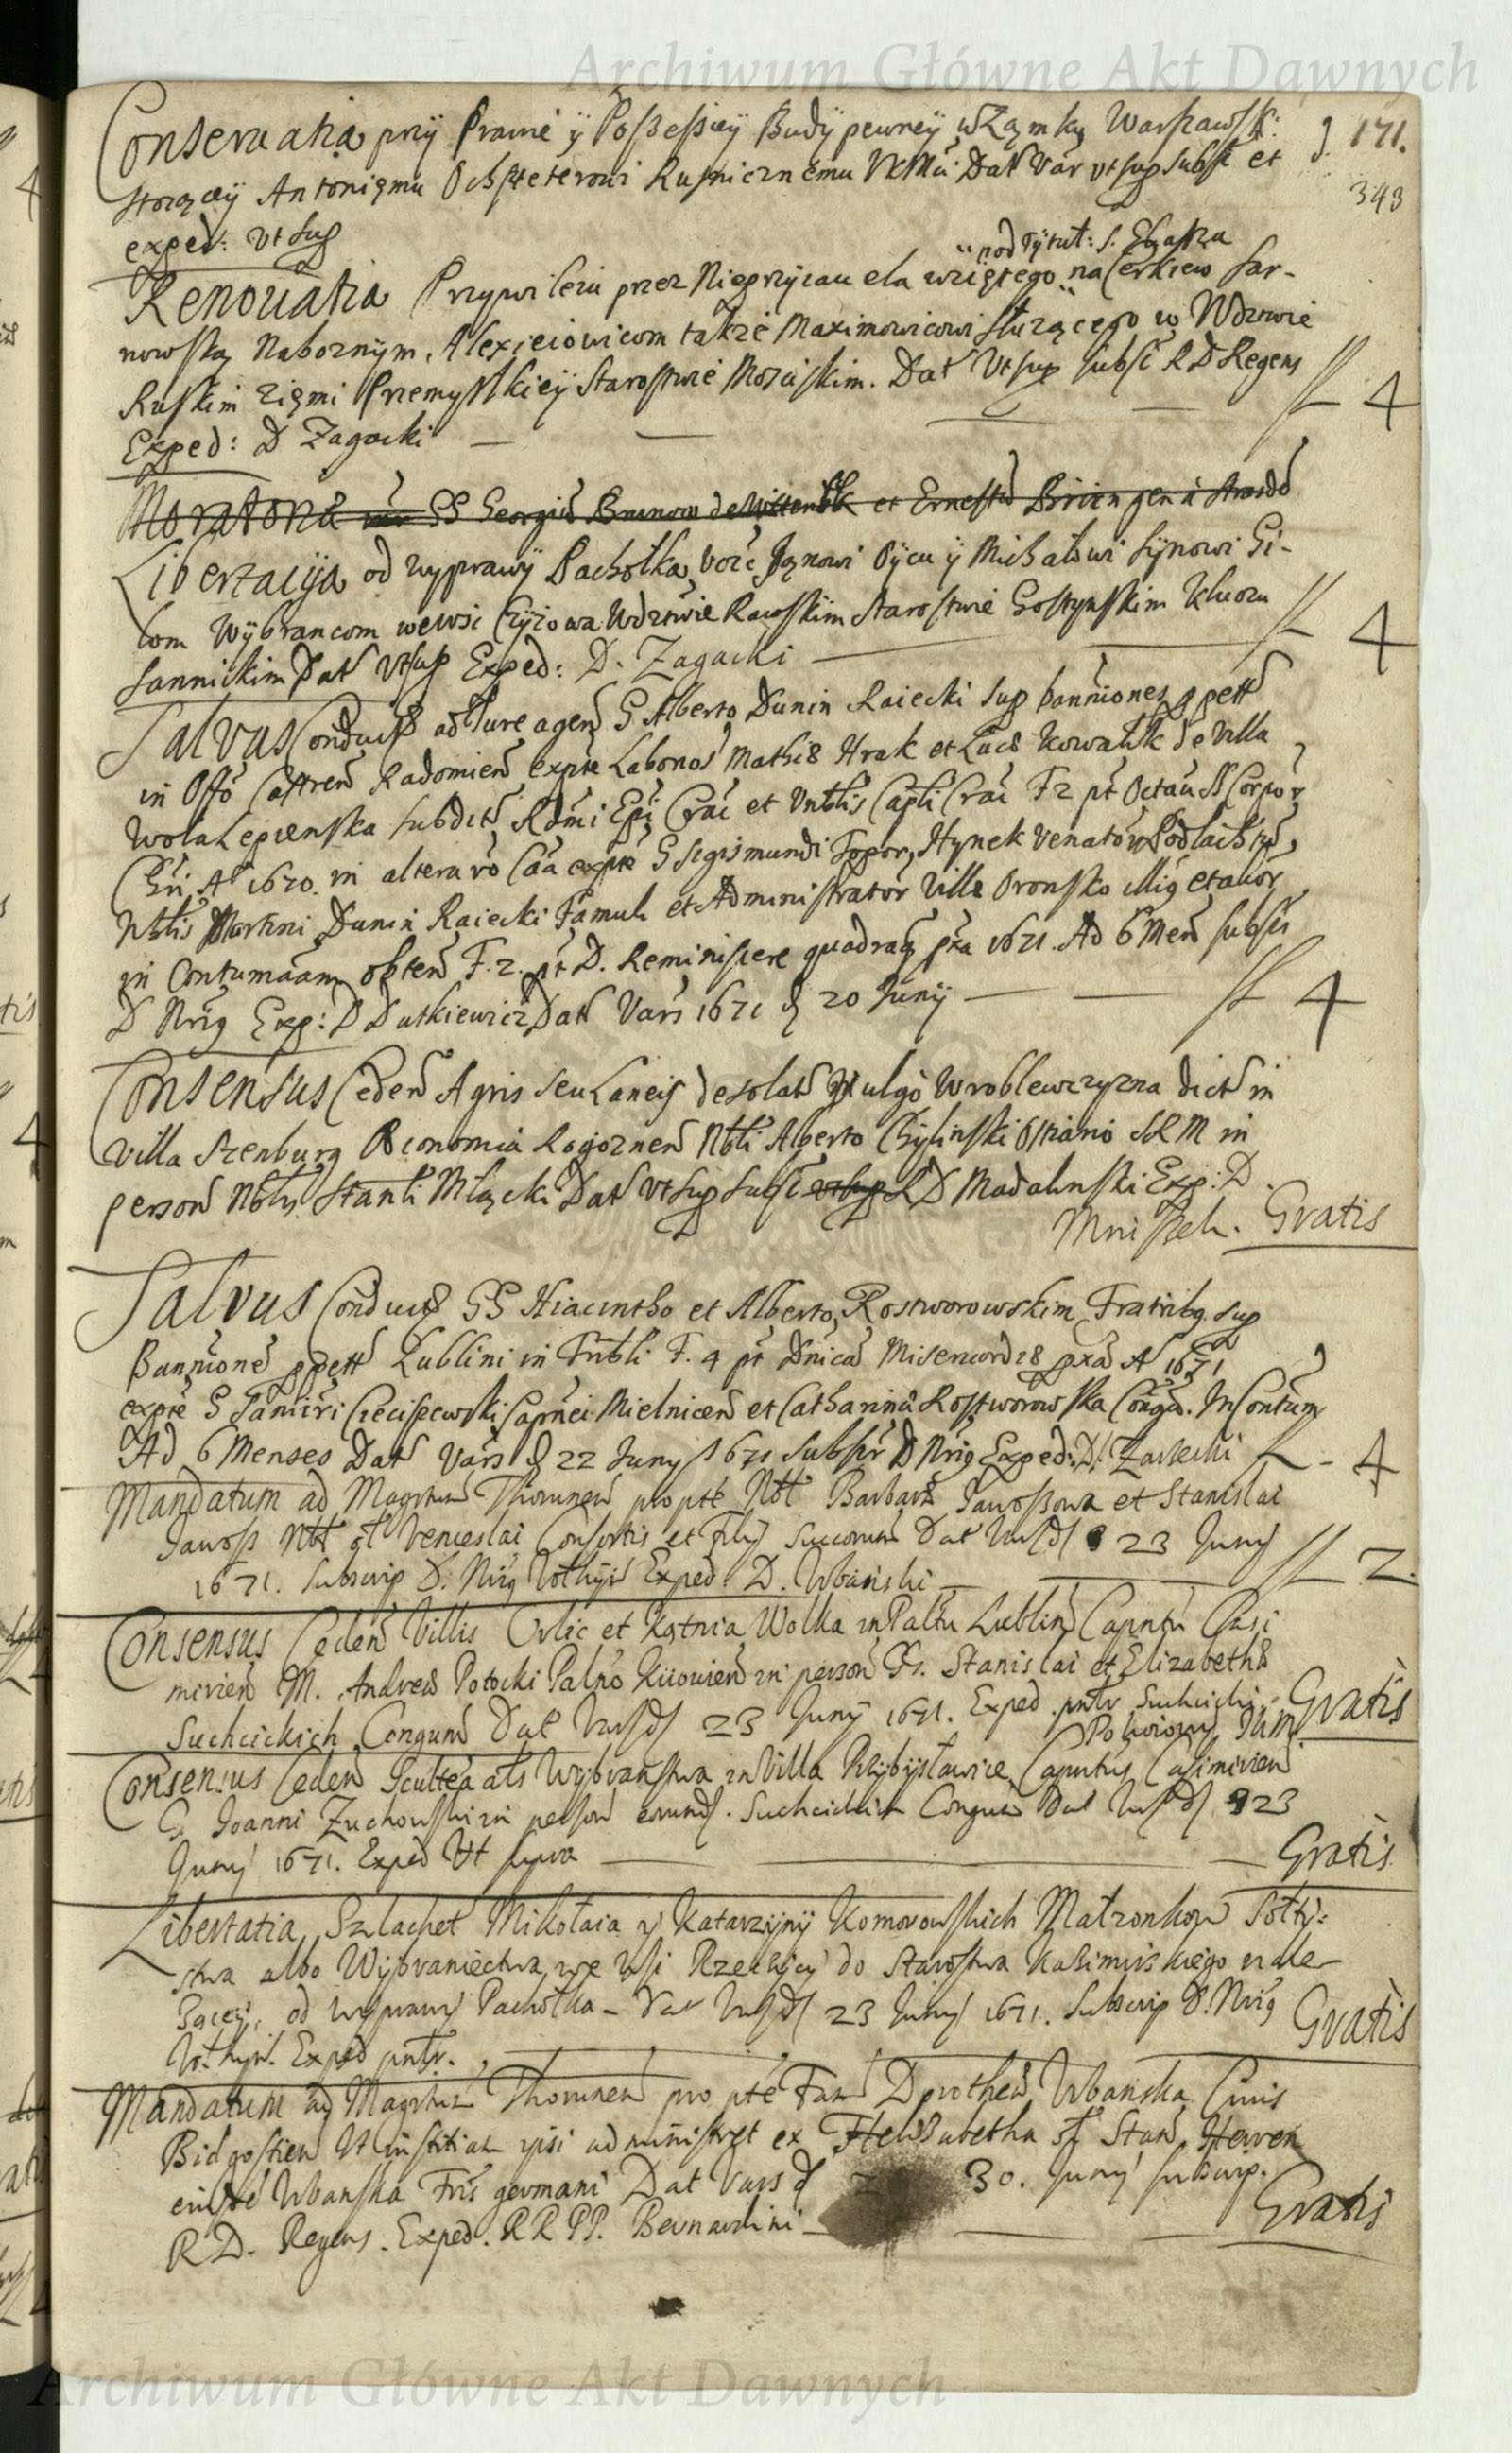 Archiwum Główne Akt Dawnych
171.
343
Conseruatia przÿ Prawie ÿ Possessieÿ Budÿ pewneÿ w Zamku Warszawsk:
stoiąceÿ Antoniemu Rusnicznemu Dat Var vt sup subsc et
exped: vt sup
"pod Tÿtuł: S. Eliasza
Renouatia Przywileiu przez Nieprzÿiaciela wziętego na Cerkiew Sar-
nowską Naboznÿm Alexieiowicom takze Maximowicowi słuzącego w Wdztwie
Ruskim ziemi Przemyskieÿ Starostwie Mosciskim. Dat vt sup subsc R D Regens
Exped: D Zagacki
4
Moratoria GG Georgio Brunow de et Ernesto
Libertacÿa od wyprawÿ Pachołka Janowi Oÿcu ÿ Michałowi Sÿnowi Gi-
lom Wÿbrancom wewsi w Wdztwie Rawskim Starostwie Gostynskim kluczu
Sannickim Dat vt sup Exped: D. Zagacki
4
Salvus Conduct ad Iure agend G Alberto Dunin Raiecki sup bannitiones ppett
in Offo Castren Radomien expte Laborios Mathis Hrak et Luca Kowalik de Villa
Wola Lepienska subdit Rdmi Epi Crac et Vnblis Capli Crac F 2 pt Octau SS Corpor
Chri A 1670. in altera vo Caa expte G Sigismundi Topor, Hynek Venator Podlachiae,
Nblis Martini Dunin Raiecki Famuli et Administrator Villae Oronsko illig et alior
in Contumaciam obten F. 2. pt D. Reminiscere quadrag pxa 1671. Ad 6 Men subscr
D Nrig Exp: D Dutkiewicz Dat Vars 1671 d 20 Junÿ
4
Consensus Ceden Agris seu Laneis desolat vulgo Wroblewczyzna dict in
villa Szenburg Oeconomia Rogoznen Nbli Alberto Chylinski Ostiario SRM in
person Nblis Stanli Młącki Dat vt sup subsc vt sup R D Madalinski Exp: D.
Mniszek. Gratis
Salvus Conduct GG Hiacintho et Alberto Rostworowskim Fratribq sup
Bannitione ppett Lublini in Tribli F. 4 pt Dnica Misericordiae pxa A 1671
expte G Casimiri Cieciszewski Capnei Mielnicen et Catharina Rostworowska Congu. In Contum
Ad 6 Menses Dat Vars d 22 Juny 1671 subscr D Nrig Exped: D. Zarzecki
4
Mandatum ad Magrtum Thorunen pro pte Nbl Barbara Jawoszowa et Stanislai
Jawosz Nbl ol Venceslai Consortis et Filÿ Dat 23 Junÿ
1671. Subscrip D. Nrig Exped. D. Wbański
2.
Consensus Ceden Villis Orlic et Kątnia Wolka in Paltu Lublin Capntu Casi
mirien M. Andrea Potocki Palno Kiiovien in person Gs. Stanislai et Elizabetha
Suchcickich Congum Dat 23 Junÿ 1671. Exped pntr Suchcicki Gratis
Consensus Ceden Scultea als Wÿbranstwa in Villa Przÿbÿsławice Capntus Casimirien
G. Joanni Zuchowski in person eorund. Suchcickich Congum Dat 23
Junÿ 1671. Exped Vt supra
Gratis
Libertatia Szlachet Mikołaia ÿ Katarzÿnÿ Komorowskich Małzonkow Sołtÿ:
stwa albo Wÿbraniectwa we Wsi Rzeczÿcÿ do Starostwa Kasimirskiego nale
zącej, od wÿprawÿ Pachołka - Dat 23 Junÿ 1671. Subscrip D. Nrig
Exped pntr.
Gratis
Mandatum ad Magrtum Thorunen pro pte Fam Dorothea Wbańska Civis
Bidgostien Vt iustitiam ipsi administret ex ol Stan
eiusde Wbanska Fris germani Dat Vars d 30. Junÿ subscrip.
R D. Regens. Exped. RR PP. Bernardini
Gratis
Archiwum Główne Akt Dawnych